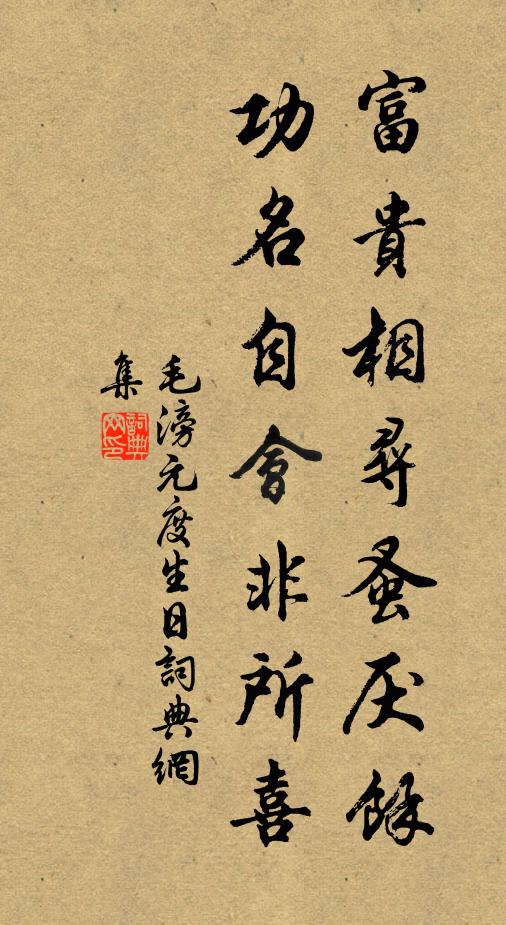 富貴相尋蚤厌餘
功名自會非所喜
毛滂元度生日詞典網
集
詞典網印